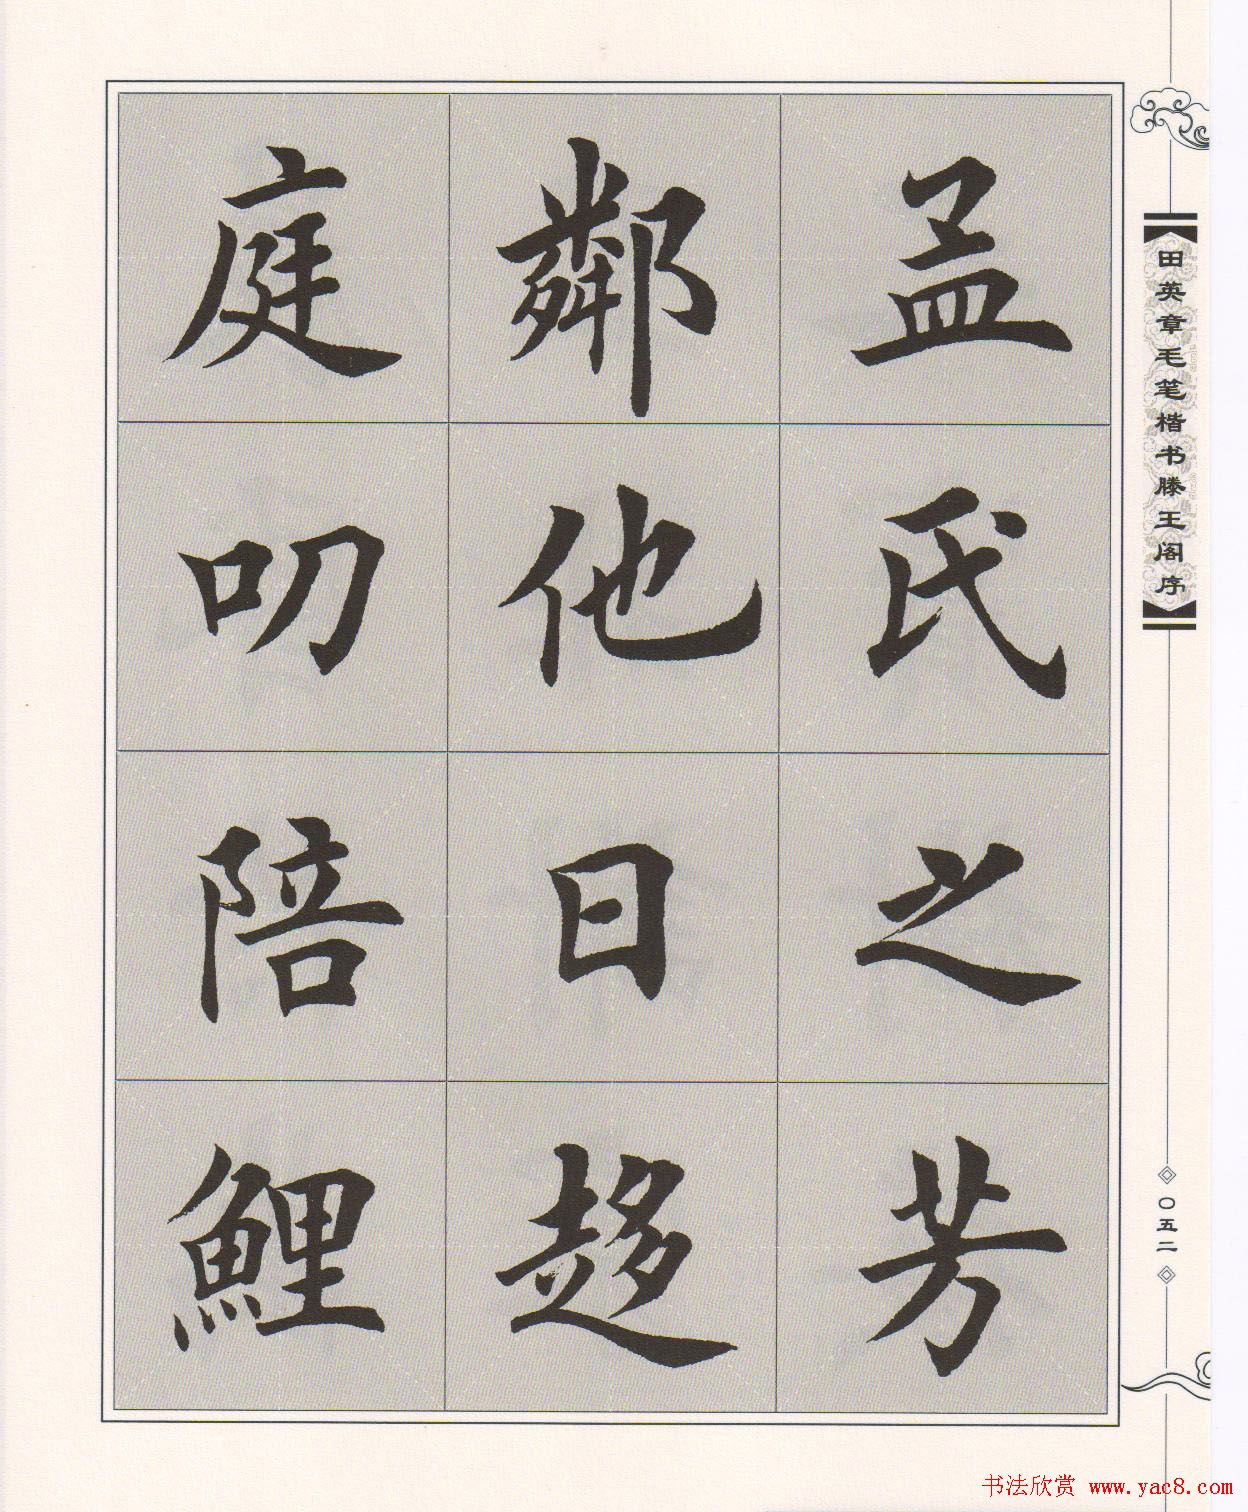 田英章毛笔楷书滕王阁序
孟氏之芳
鄰他日趍
庭叨陪鯉
〇五二
书法欣赏 www.yac8.com